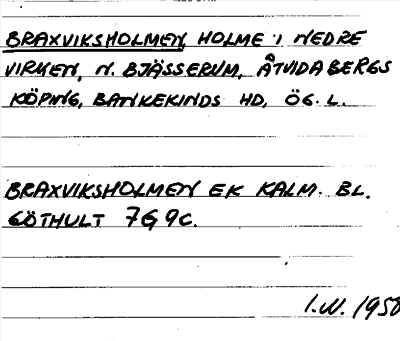 BRAXVIKSHOLMEN, HOLME I NEDRE
VIRKEN, N. BJÄSSERUM, ÅTVIDABERGS
KÖPING, BANKEKINDS HD, ÖG. L.
BRAXVIKSHOLMEN EK KALM. BL.
GÖTHULT 7G9C.
I.W. 1958